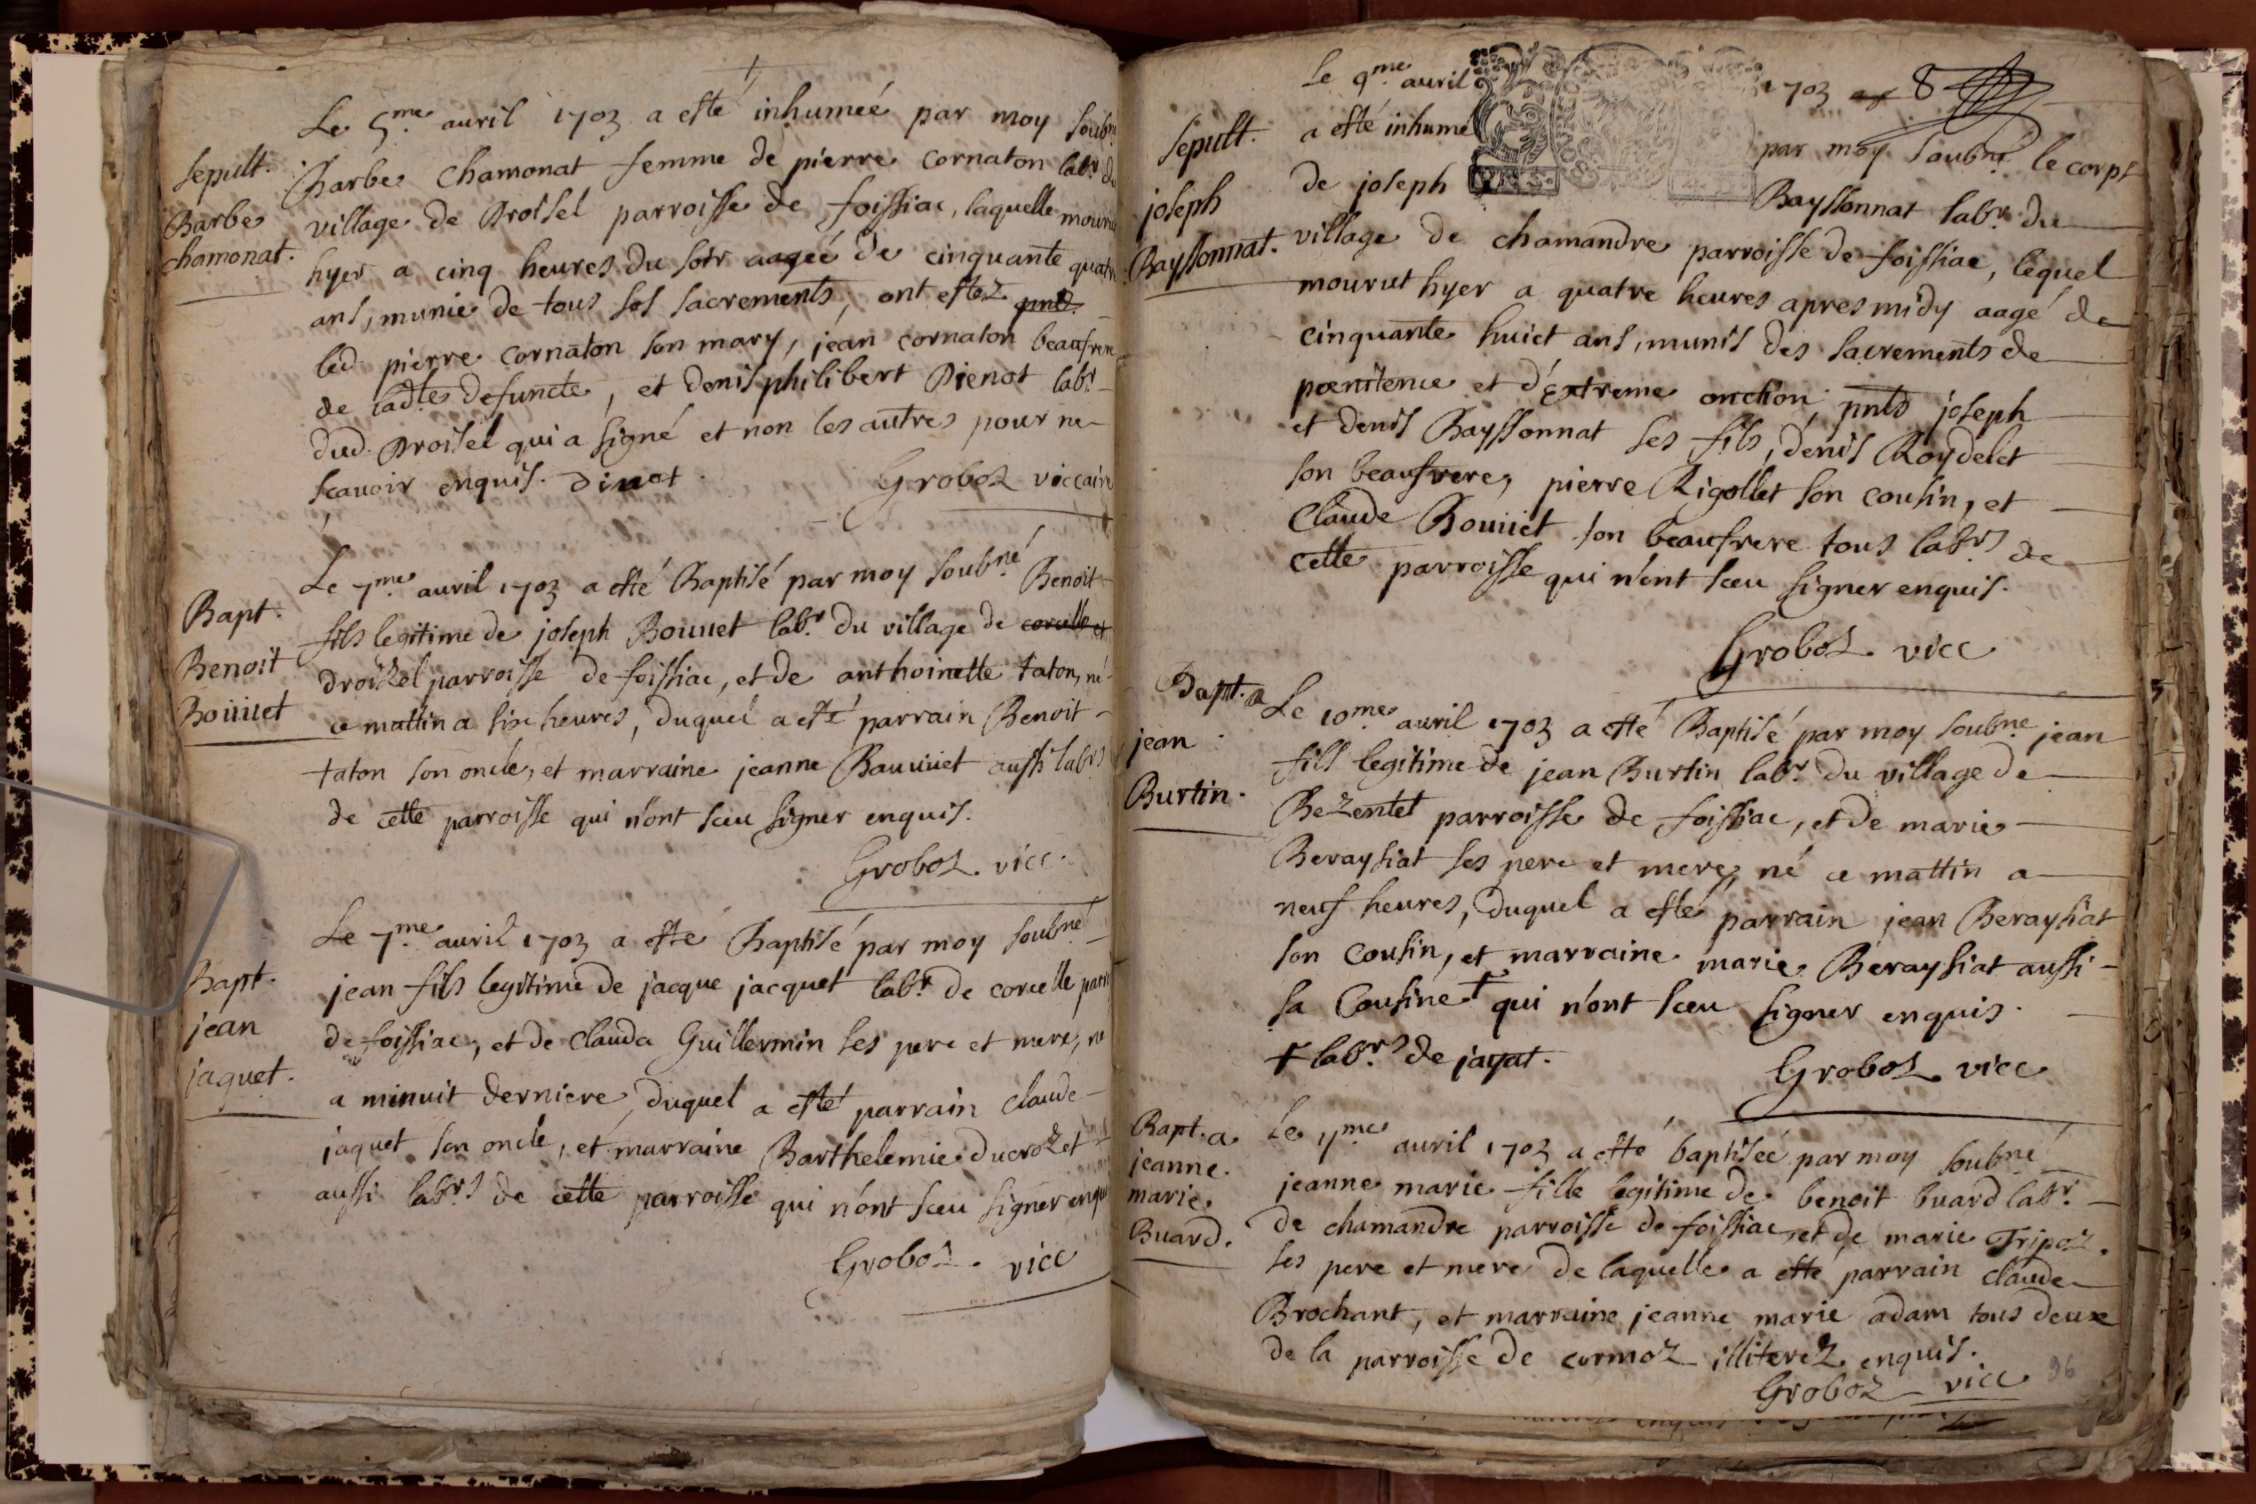 Le 5me auril 1703 a esté inhumeé par moy soubné
sepult. Barbe chamonat femme de pierre cornaton labr. du
Barbe village de Droisel parroisse de foissiac, laquelle mourut
chamonat. hyer a cinq heures du soir aageé de cinquante quatre
ans, munie de tous ses sacrements, ont estez pnts.
led pierre cornaton son mary, jean cornaton beaufrere
de ladte defuncte, et denis philibert Dienot labr.
dud. Droisel qui a signé et non les autres pour ne
scauoir enquis. Dinot. Groboz viccaire
Le 7me auril 1703 a esté Baptisé par moy soubné Benoit
Bapt. fils legitime de joseph Bouuet labr. du village de corcelle et
Benoit droizel parroisse de foissiac, et de anthoinette taton, né
Bouuet ce mattin a six heures, duquel a esté parrain Benoit
taton son oncle, et marraine jeanne Bauuiet aussi labrs
de cette parroisse qui n'ont sceu signer enquis.
Groboz. vicc.
Le 7me auril 1703 a esté Baptisé par moy soubné
Bapt. jean fils legitime de jacque jacquet labr. de corcelle parr
jean de foissiac, et de clauda Guillermin ses pere et mere, né
jaquet. a minuit derniere, duquel a esté parrain claude
jaquet son oncle, et marraine Barthelemie ducrozet
aussi labrs de cette parroisse qui n'ont sceu signer enqui
Groboz. vicc
Le 9me auril 1703 8
sepult. a esté inhumé par moy soubné le corps
joseph de joseph Bayssonnat labr. du
Bayssonnat. village de chamandre parroisse de foissiac, lequel
mourut hyer a quatre heures apres midy aagé de
cinquante huict ans, munis des sacrements de
poenitence et d'extreme onction, pnts joseph
et denis Bayssonnat ses fils, denis Roydelet
son beaufrere, pierre Rigollet son cousin, et
Claude Bouuiet son beaufrere tous labrs de
cette parroisse qui n'ont sceu signer enquis.
Groboz. vicc
Bapt. Le 10me auril 1703 a esté Baptisé par moy soubné jean
jean fils legitime de jean Burtin labr. du village de
Burtin. Bezentet parroisse de foissiac, et de marie
Beraysiat ses pere et mere, né ce mattin a
neuf heures, duquel a esté parrain jean Beraysiat
son cousin, et marraine marie Beraysiat aussi
sa Cousine † qui n'ont sceu signer enquis.
† labrs de jayat. Groboz vicc
Bapt. a Le 11me auril 1703 a esté baptiseé par moy soubné
jeanne jeanne marie fille legitime de benoit buard labr.
marie de chamandre parroisse de foissiac, et de marie Tripoz.
Buard. ses pere et mere de laquelle a esté parrain claude
Brochant, et marraine jeanne marie adam tous deux
de la parroisse de cormoz illiterez enquis.
Groboz vicc 96